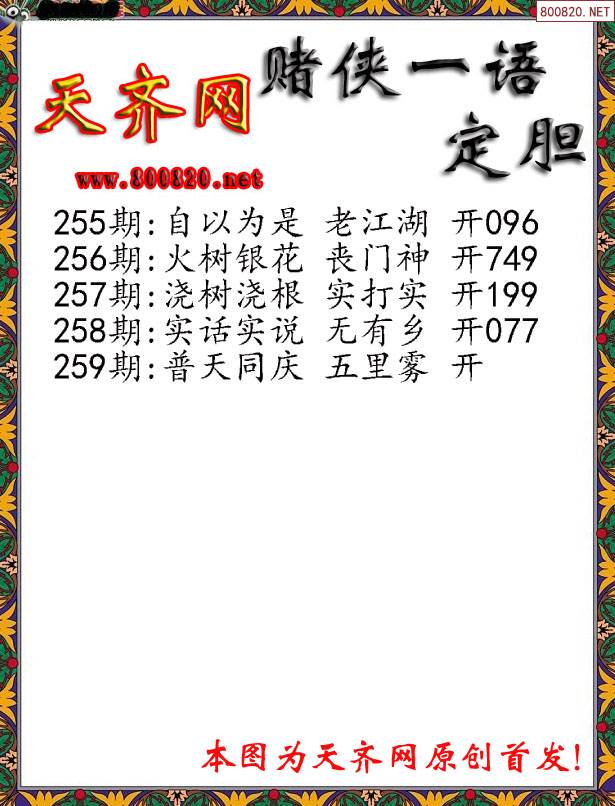 800820.NET
天齐网
赌侠一语
定胆
www.800820.net
255期:自以为是 老江湖 开096
256期:火树银花 丧门神 开749
257期:浇树浇根 实打实 开199
258期:实话实说 无有乡 开077
259期:普天同庆 五里雾 开
本图为天齐网原创首发!